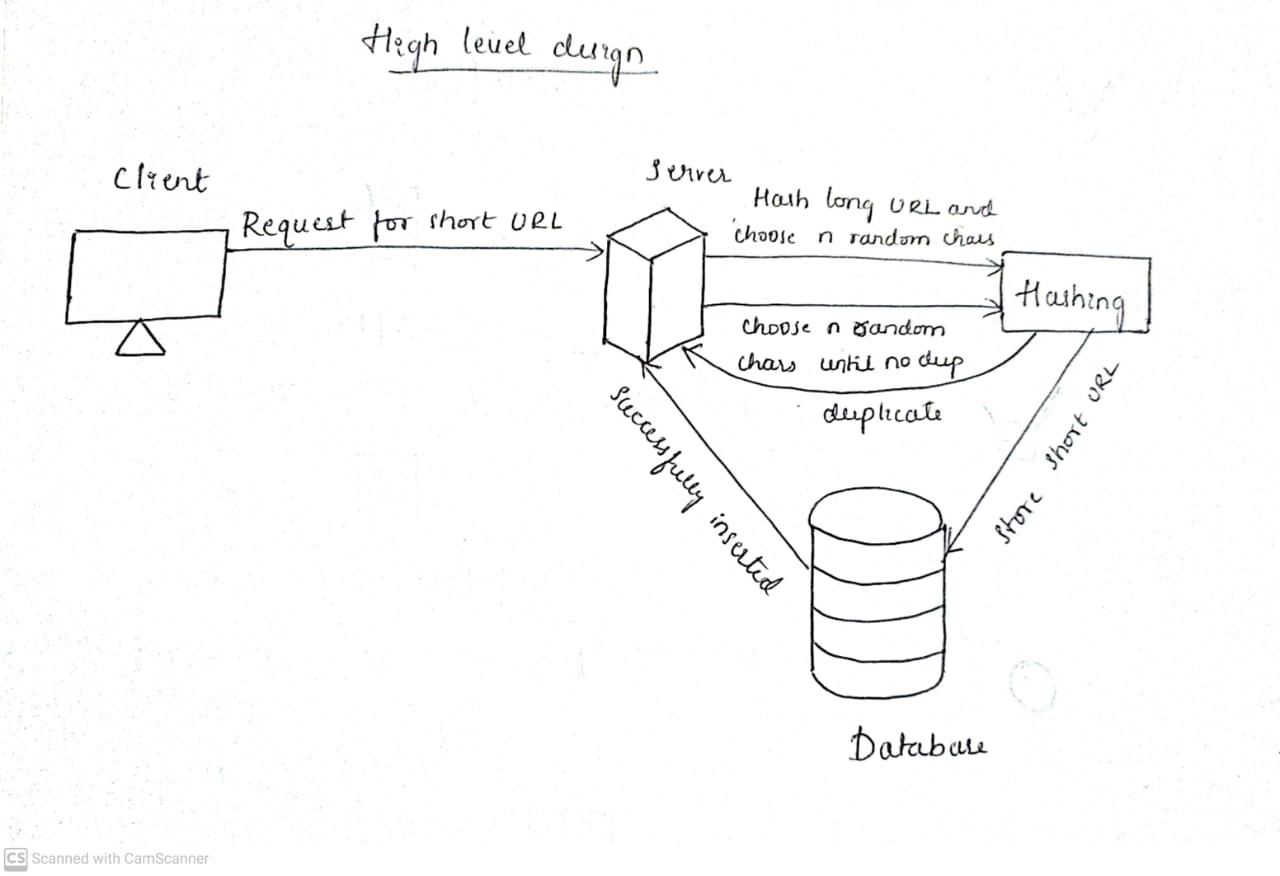 High level design
Client
Server
Request for short URL
Hash long URL and
choose n random chars
Hashing
choose n random
chars until no dup
duplicate
Successfully inserted
Store short URL
Database
CS Scanned with CamScanner